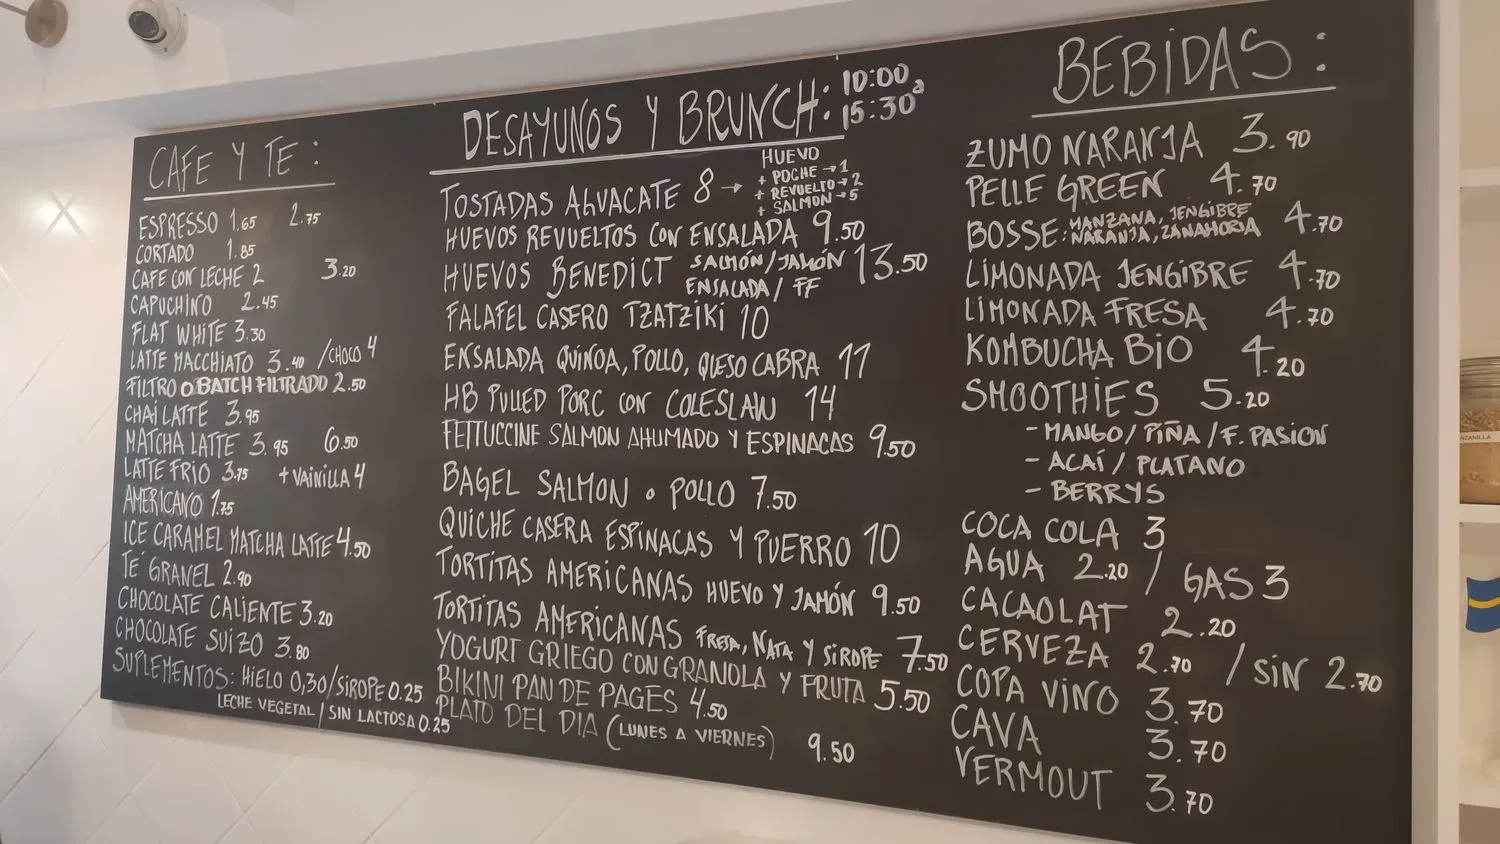 CAFE Y TE:
ESPRESSO 1.65 2.75
CORTADO 1.85
CAFE CON LECHE 2 3.20
CAPUCHINO 2.45
FLAT WHITE 3.30
LATTE MACCHIATO 3.40 /CHOCO 4
FILTRO O BATCH FILTRADO 2.50
CHAI LATTE 3.95
MATCHA LATTE 3.95 6.50
LATTE FRIO 3.75 + VAINILLA 4
AMERICANO 1.75
ICE CARAMEL MATCHA LATTE 4.50
TÉ GRANEL 2.90
CHOCOLATE CALIENTE 3.20
CHOCOLATE SUIZO 3.80
SUPLEMENTOS: HIELO 0,30/SIROPE 0.25
LECHE VEGETAL / SIN LACTOSA 0.25
DESAYUNOS Y BRUNCH: 10:00 a
15:30
TOSTADAS ALVACATE 8 →
HUEVO
+ POCHE → 1
+ REVUELTO → 2
+ SALMON → 5
HUEVOS REVUELTOS CON ENSALADA 9.50
HUEVOS BENEDICT SALMÓN/JAMÓN 13.50
ENSALADA/ FF
FALAFEL CASERO TZATZIKI 10
ENSALADA QUINOA, POLLO, QUESO CABRA 11
HB PULLED PORC CON COLESLAW 14
FETTUCCINE SALMON AHUMADO Y ESPINACAS 9.50
BAGEL SALMON o POLLO 7.50
QUICHE CASERA ESPINACAS Y PUERRO 10
TORTITAS AMERICANAS HUEVO Y JAMÓN 9.50
TORTITAS AMERICANAS FRESA, NATA Y SIROPE 7.50
YOGURT GRIEGO CON GRANOLA Y FRUTA 5.50
BIKINI PAN DE PAGES 4.50
PLATO DEL DIA (LUNES A VIERNES) 9.50
BEBIDAS:
ZUMO NARANJA 3.90
PELLE GREEN 4.70
BOSSE: MANZANA, JENGIBRE 4.70
NARANJA, ZANAHORIA
LIMONADA JENGIBRE 4.70
LIMONADA FRESA 4.70
KOMBUCHA BIO 4.20
SMOOTHIES 5.20
- MANGO/ PIÑA / F. PASION
- ACAÍ / PLATANO
- BERRYS
COCA COLA 3
AGUA 2.20 / GAS 3
CACAOLAT 2.20
CERVEZA 2.70 / SIN 2.70
COPA VINO 3.70
CAVA 3.70
VERMOUT 3.70